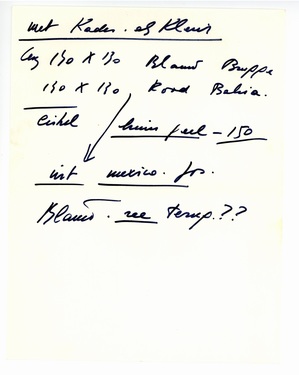 met Kader. of Kleur
130 X 130 Blauw Brugge
130 X 130, Rood Bahia.
Cirkel geel - 150
wit mexico.
Blauw. zee temp.??